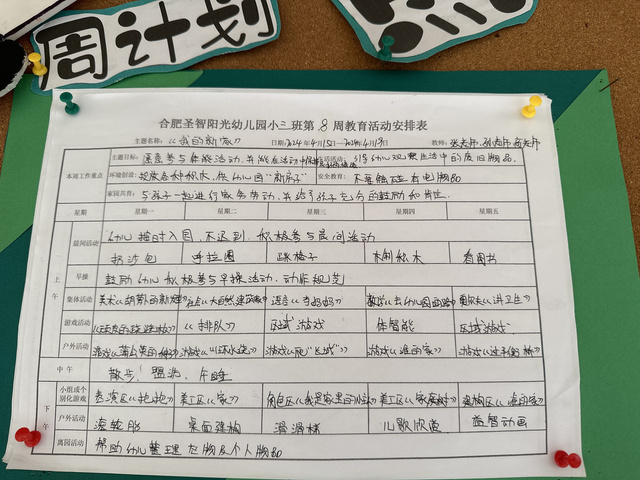 周计划
合肥圣智阳光幼儿园小三班第 8 周教育活动安排表
主题名称：《我的新家》 日期：2024年4月15日—2024年4月19日 教师：
本周工作重点 主题目标：愿意参与体能活动，并能在活动中 引导幼儿观察生活中的废旧物品。
环境创设：投放各种积木，供幼儿园“新房子” 安全教育：不要触碰有电物品
家园共育：与孩子一起进行家务劳动，并给予孩子充分的鼓励和肯定。
星期 星期一 星期二 星期三 星期四 星期五
上午 晨间活动 幼儿按时入园，不迟到，积极参与晨间活动
扔沙包 呼拉圈 跳格子 积木 看图书
早操 鼓励幼儿积极参与早操活动，动作规范
集体活动 美术《胡萝卜的新家》 社会《大自然建筑家》 语言《当妈妈》 数学《去幼儿园的路》 《讲卫生》
游戏活动 《排队》 区域游戏 体智能 区域游戏
户外活动 游戏《蒲公英的种子》 游戏《小小环水浇》 游戏《爬“长城”》 游戏《谁的家》 游戏《过平衡桥》
中午 散步、盥洗、午睡
下午 小组或个别化游戏 表演区《抱抱》 美工区《家》 角色区《我是家里的小 》 美工区《家庭树》 建构区《谁的家》
户外活动 滚轮胎 桌面建构 滑滑梯 儿歌欣赏 益智动画
离园活动 帮助幼儿整理衣物及个人物品